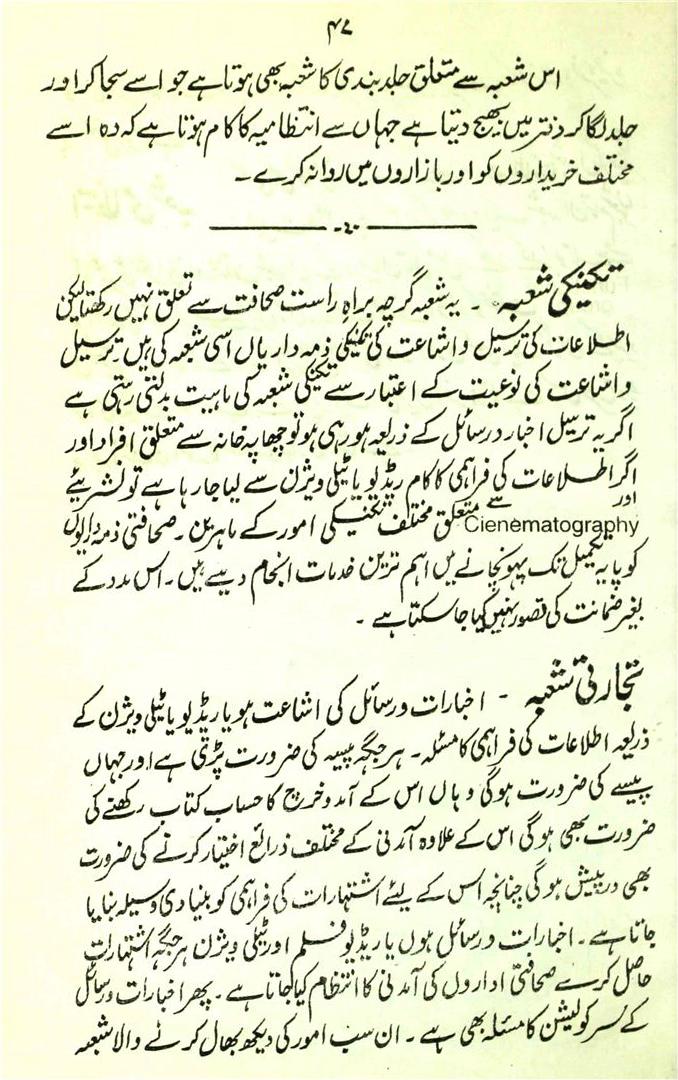 ۴۷
اس شعبہ سے متعلق جلد بندی کا شعبہ بھی ہوتا ہے جو اسے سجا کر اور
جلد لگا کر دفتر میں بھیج دیتا ہے جہاں سے انتظامیہ کا کام ہوتا ہے کہ وہ اسے
مختلف خریداروں کو اور بازاروں میں روانہ کرے ۔
تکنیکی شعبہ ۔ یہ شعبہ گرچہ براہِ راست صحافت سے تعلق نہیں رکھتا لیکن
اطلاعات کی ترسیل و اشاعت کی تکنیکی ذمہ داریاں اسی شعبہ کی ہیں ۔ ترسیل
و اشاعت کی نوعیت کے اعتبار سے تکنیکی شعبہ کی ماہیت بدلتی رہتی ہے
اگر یہ ترسیل اخبار و رسائل کے ذریعہ ہو رہی ہو تو چھاپہ خانہ سے متعلق افراد اور
اگر اطلاعات کی فراہمی کا کام ریڈیو یا ٹیلی ویژن سے لیا جا رہا ہے تو نشریئے
اور Cienematography سے متعلق مختلف تکنیکی امور کے ماہرین ۔ صحافتی ذمہ داریوں
کو پایہ تکمیل تک پہونچانے میں اہم ترین خدمات انجام دیتے ہیں ۔ اس مدد کے
بغیر ضمانت کی تصور نہیں کیا جا سکتا ہے ۔
تجارتی شعبہ ۔ اخبارات و رسائل کی اشاعت ہو یا ریڈیو یا ٹیلی ویژن کے
ذریعہ اطلاعات کی فراہمی کا مسئلہ ۔ ہر جگہ پیسہ کی ضرورت پڑتی ہے اور جہاں
پیسے کی ضرورت ہوگی وہاں اس کے آمد و خرچ کا حساب کتاب رکھنے کی
ضرورت بھی ہوگی اس کے علاوہ آمدنی کے مختلف ذرائع اختیار کرنے کی ضرورت
بھی درپیش ہوگی چنانچہ اس کے لیئے اشتہارات کی فراہمی کو بنیادی وسیلہ بنایا
جاتا ہے ۔ اخبارات و رسائل ہوں یا ریڈیو فلم اور ٹیلی ویژن ہر جگہ اشتہارات
حاصل کرے صحافتی اداروں کی آمدنی کا انتظام کیا جاتا ہے ۔ پھر اخبارات و رسائل
کے سرکولیشن کا مسئلہ بھی ہے ۔ ان سب امور کی دیکھ بھال کرنے والا شعبہ